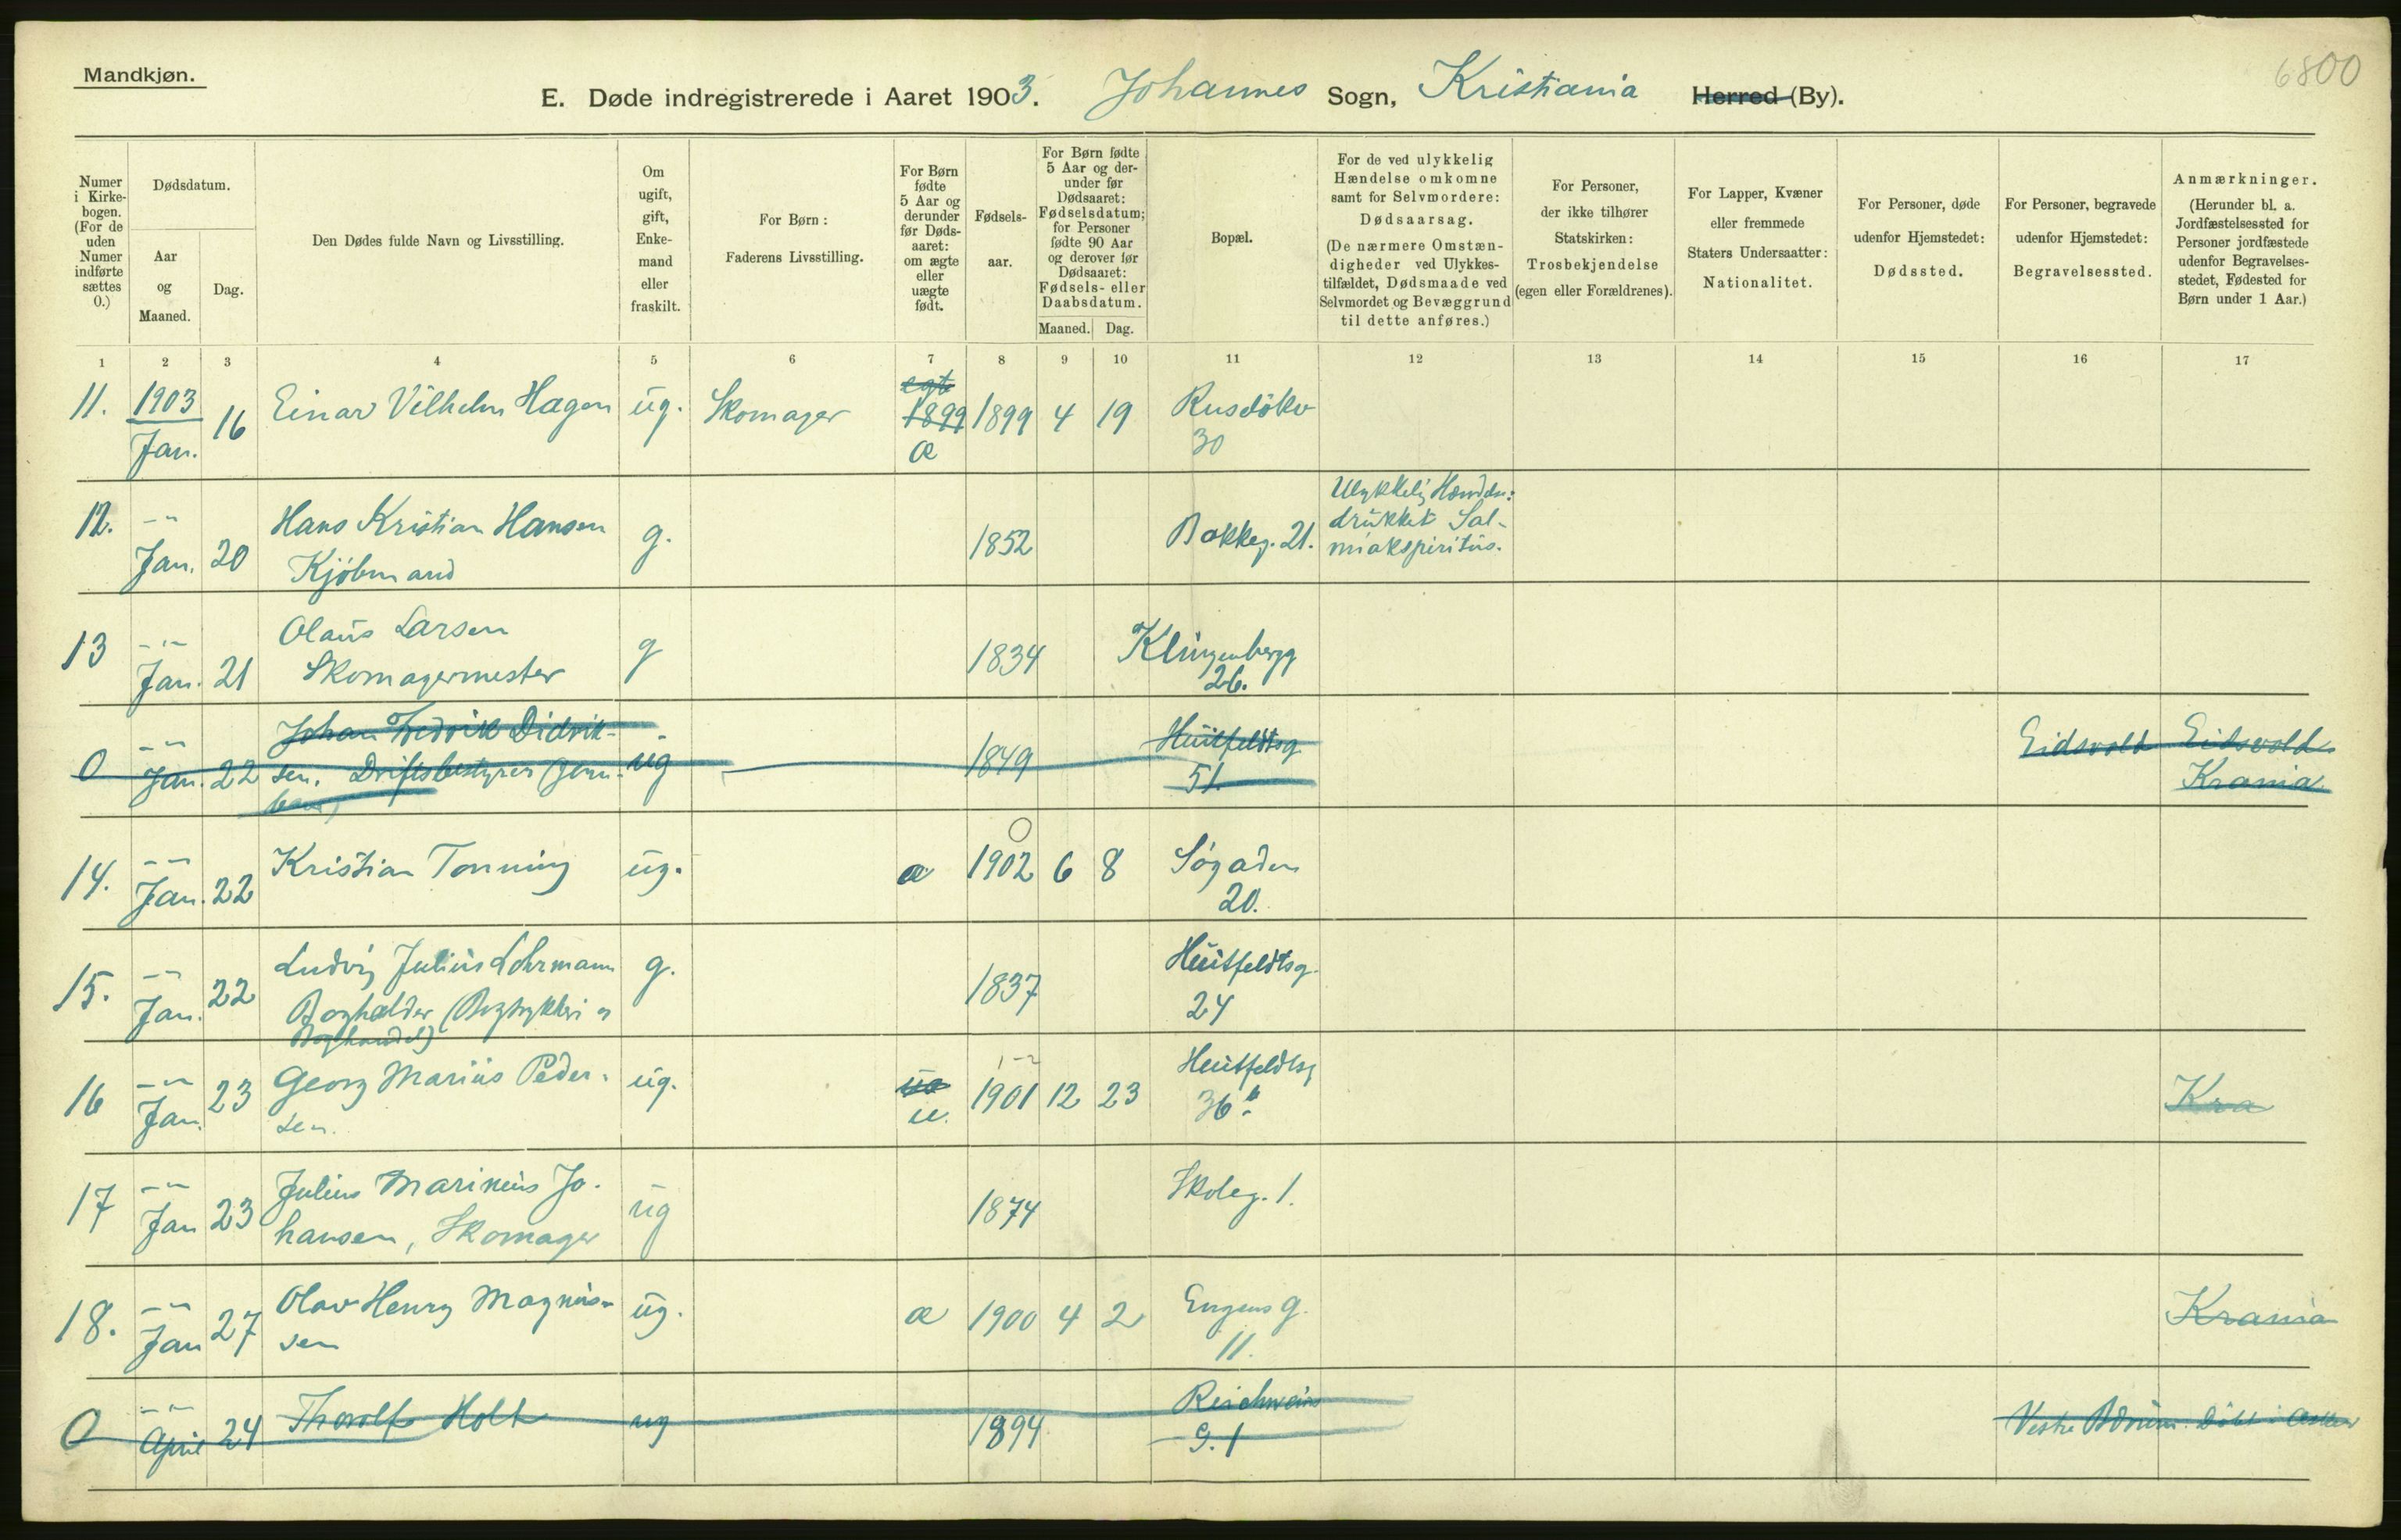 Mandkjøn.
6800
E. Døde indregistrerede i Aaret 1903. Johannes Sogn, Kristiania Herred (By).
Numer i Kirkebogen. (For de uden Numer indførte sættes 0.)
Dødsdatum.
Aar og Maaned.
Dag.
Den Dødes fulde Navn og Livsstilling.
Om ugift, gift, Enkemand eller fraskilt.
For Børn: Faderens Livsstilling.
For Børn fødte 5 Aar og derunder før Dødsaaret: om ægte eller uægte født.
Fødselsaar.
For Børn fødte 5 Aar og derunder før Dødsaaret: Fødselsdatum; for Personer fødte 90 Aar og derover før Dødsaaret: Fødsels- eller Daabsdatum.
Maaned. Dag.
Bopæl.
For de ved ulykkelig Hændelse omkomne samt for Selvmordere: Dødsaarsag. (De nærmere Omstændigheder ved Ulykkestilfældet, Dødsmaade ved Selvmordet og Bevæggrund til dette anføres.)
For Personer, der ikke tilhører Statskirken: Trosbekjendelse (egen eller Forældrenes).
For Lapper, Kvæner eller fremmede Staters Undersaatter: Nationalitet.
For Personer, døde udenfor Hjemstedet: Dødssted.
For Personer, begravede udenfor Hjemstedet: Begravelsessted.
Anmærkninger. (Herunder bl. a. Jordfæstelsessted for Personer jordfæstede udenfor Begravelsesstedet, Fødested for Børn under 1 Aar.)
1 2 3 4 5 6 7 8 9 10 11 12 13 14 15 16 17
11. 1903 Jan. 16 Einar Vilhelm Hagen ug. Skomager egte 1899 æ 1899 4 19 Rusdökv 30
12. -"- Jan. 20 Hans Kristian Hansen
Kjöbmand g. 1852 Bakkeg. 21. Ulykkelig Hændelse:
drukket Sal-
miakspiritus.
13 -"- Jan. 21 Olaus Larsen
Skomagermester g 1834 Klingenbergg
26.
0 -"- Jan. 22 Johan Fredrik Didrik-
sen. Driftsbestyrer (Jern-
bane) ug 1849 Huitfeldtsg
51. Eidsvold Eidsvold
Krania
14. -"- Jan. 22 Kristian Tonning ug. æ 1902 6 8 Søgaden
20.
15. -"- Jan. 22 Ludvig Julius Lehrmann
Bogholder (Bogtrykkeri og
Boghandel) g. 1837 Huitfeldtsg.
24
16 -"- Jan. 23 Georg Marius Peder-
sen. ug. uæ u. 1901 12 23 Huitfeldtsg
36 b. Kra
17 -"- Jan 23 Julius Marinius Jo-
hansen, Skomager ug 1874 Skoleg. 1.
18. -"- Jan 27 Olav Henry Magnus-
sen ug. æ 1900 4 2 Engens g.
11. Krania
0 -"- April 24 Thorolf Holt ug 1894 Reichweins
g. 1 Vestre Bærum. Døbt i Asker